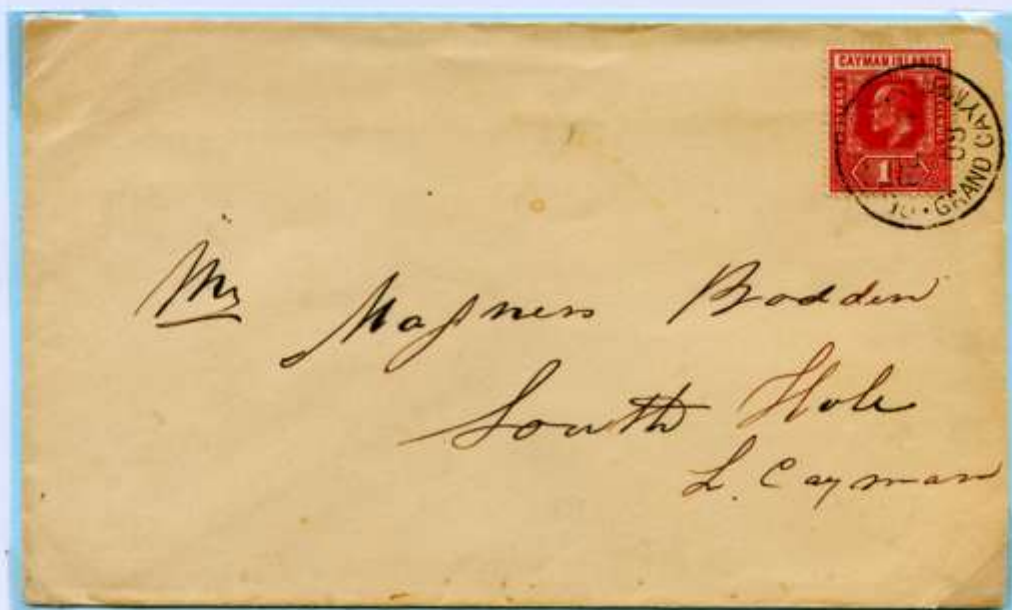 CAYMAN ISLANDS
POSTAGE
1
GRAND CAYMAN
09
Mr Magness Bodden
South Hole
L. Cayman